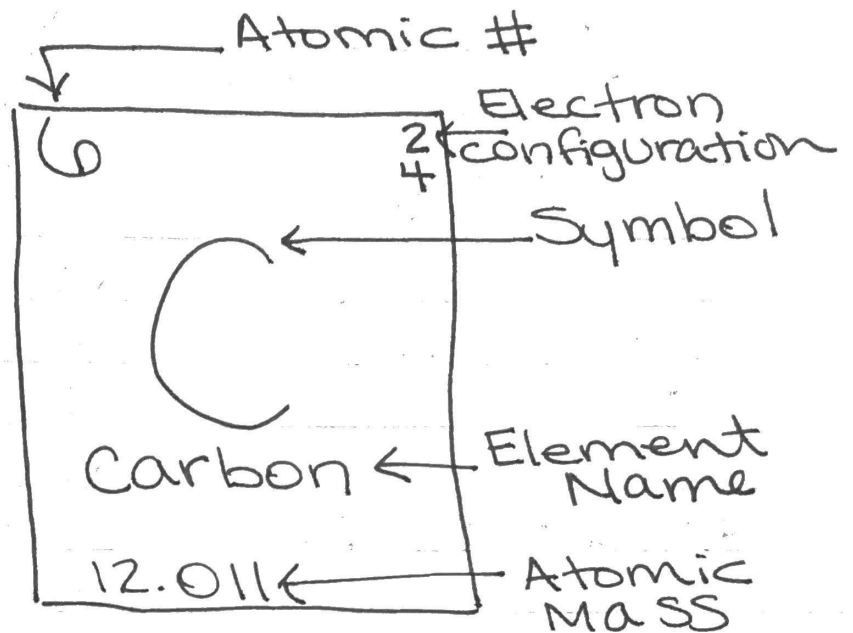 Atomic #
6
2
4
Electron
configuration
Symbol
C
Carbon
Element
Name
12.011
Atomic
Mass